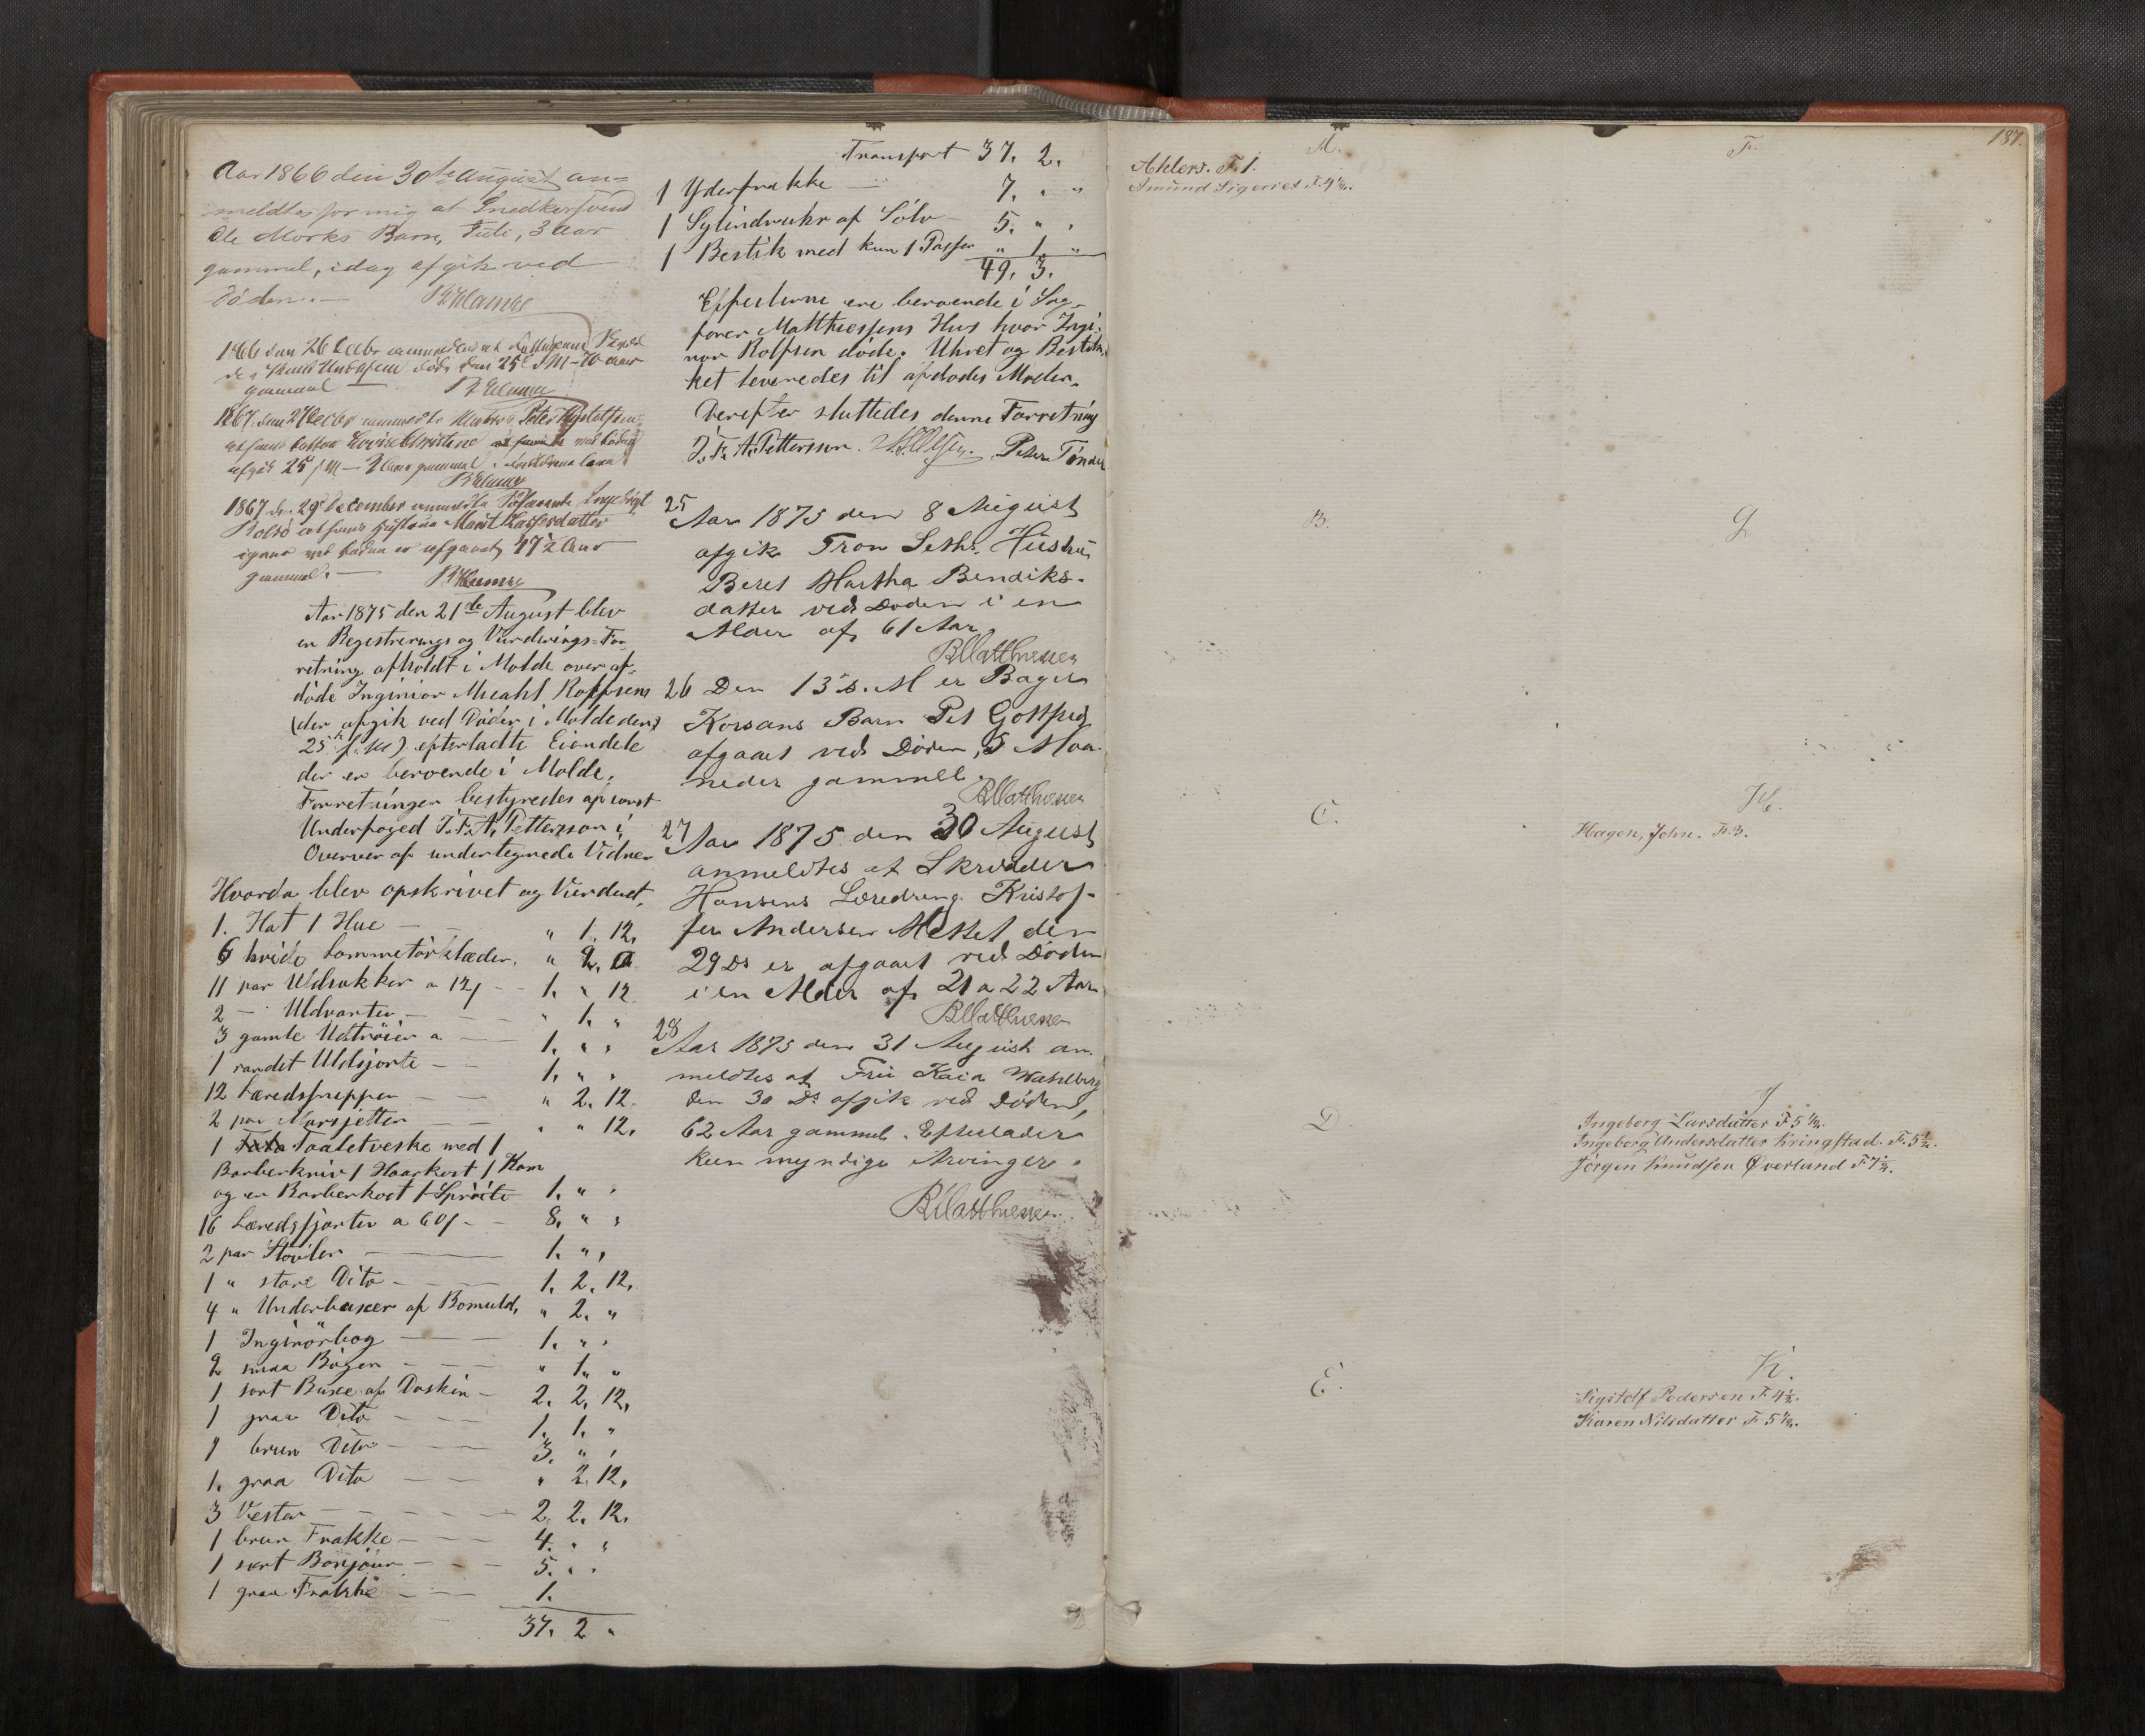 Aar 1866 den 30te August an-
meldtes for mig at Snedkersvend
Ole Morks Barn, 3 Aar
gammel, idag afgik ved
Døden. —
1866 den 26 Decbr
døde den 25 d M - 70 aar
gammel
1867 den 27 Decbr anmeldte
Lovise Christine
afgik 25 d M - 2 Aar gammel
1867 den 29 December anmeldte Ingebrigt
Rolsø at hans Marit Lassesdatter
igaar ved Døden er afgaaet 47½ Aar
gammel. —
Aar 1875 den 21de August blev
en Registrerings og Vurderings-For-
retning afholdt i Molde over af-
døde Inginiør Rolfsens
(der afgik ved Døden i Molde den
25 f. M) efterladte Eiendele
der er beroende i Molde.
Forretningen bestyredes af const
Underfoged J. F. A. Petterson i
Overvær af undertegnede Vidner
Hvorda blev opskrivet og Vurderet,
1. Hat 1 Hue — " 1. 12.
6 hvide Lommetørklæder. " 2.
11 par Uldsokker a 12 — 1. " 12
2 — Uldvanter — " 1. "
3 gamle Uldtrøier a — 1. " "
1 randet Uldsjorte — 1. " "
12 Læredssnipper — " 2. 12.
2 par Marsjetter — " " 12.
1 Toaletveske med 1
Barberkniv 1 Haarkost 1 Kam
og en Barberkost 1 Sprøite 1. " "
16 Læredsjorter a 60 — 8. " "
2 par Støvler — 1. " "
1 " store Dito — 1. 2. 12.
4 " Underbuxer af Bomuld, " 2. "
1 Inginörbog — 1. " "
2 smaa Bøger — " 1. "
1 sort Buxe af Doskin — 2. 2. 12.
1 graa Dito — 1. 1. "
1 brun Dito — 3. " "
1. graa Dito — " 2. 12.
3 Vester — 2. 2. 12.
1 brun Frakke — 4. " "
1 sort Bonjour — 5. " "
1 graa Frakke — 1.
37. 2 "
Transport 37. 2.
1 Yderfrakke — 7. " "
1 Sylinderuhr af Sölv — 5. " "
1 Bestik med kun 1 Passer " 1. "
49. 3.
Effecterne ere beroende i Sag-
fører Matthiessens Hus hvor Ingi-
niør Rolfsen døde. Uhret og Bestik-
ket leveredes til afdødes Moder.
Derefter sluttedes denne Forretning
J. F. A. Petterson. Peter Tönder
25 Aar 1875 den 8 August
afgik Tron Seths Hustru
Beret Martha Bendiks-
datter ved Døden i en
Alder af 61 Aar.
RMatthiessen
26 Den 13 d. M er Bager
Korsans Barn Gottfred
afgaaet ved Døden, 5 Maa-
neder gammel.
RMatthiessen
27 Aar 1875 den 30 August
anmeldtes at Skrædder
Hansens Læredreng Kristof-
fer Andersen den
29 Ds er afgaaet ved Døden
i en Alder af 21 a 22 Aar
RMatthiessen
28 Aar 1875 den 31 August an-
meldtes at Fru Kaia Wahlberg
den 30 Ds afgik ved Døden,
62 Aar gammel. Efterlader
kun myndige Arvinger.
RMatthiessen
187.
A.
Ahlers. F. 1.
Amund Sigeriet F. 4½.
B.
C.
D.
E.
F.
G.
H.
Hagen, John. F. 3.
J
Ingeborg Larsdatter F 5½.
Ingeborg Andersdatter Kringstad. F. 5½.
Jørgen Knudsen Øverland F 7½.
K.
Pedersen F. 4½.
Karen Nilsdatter F. 5½.